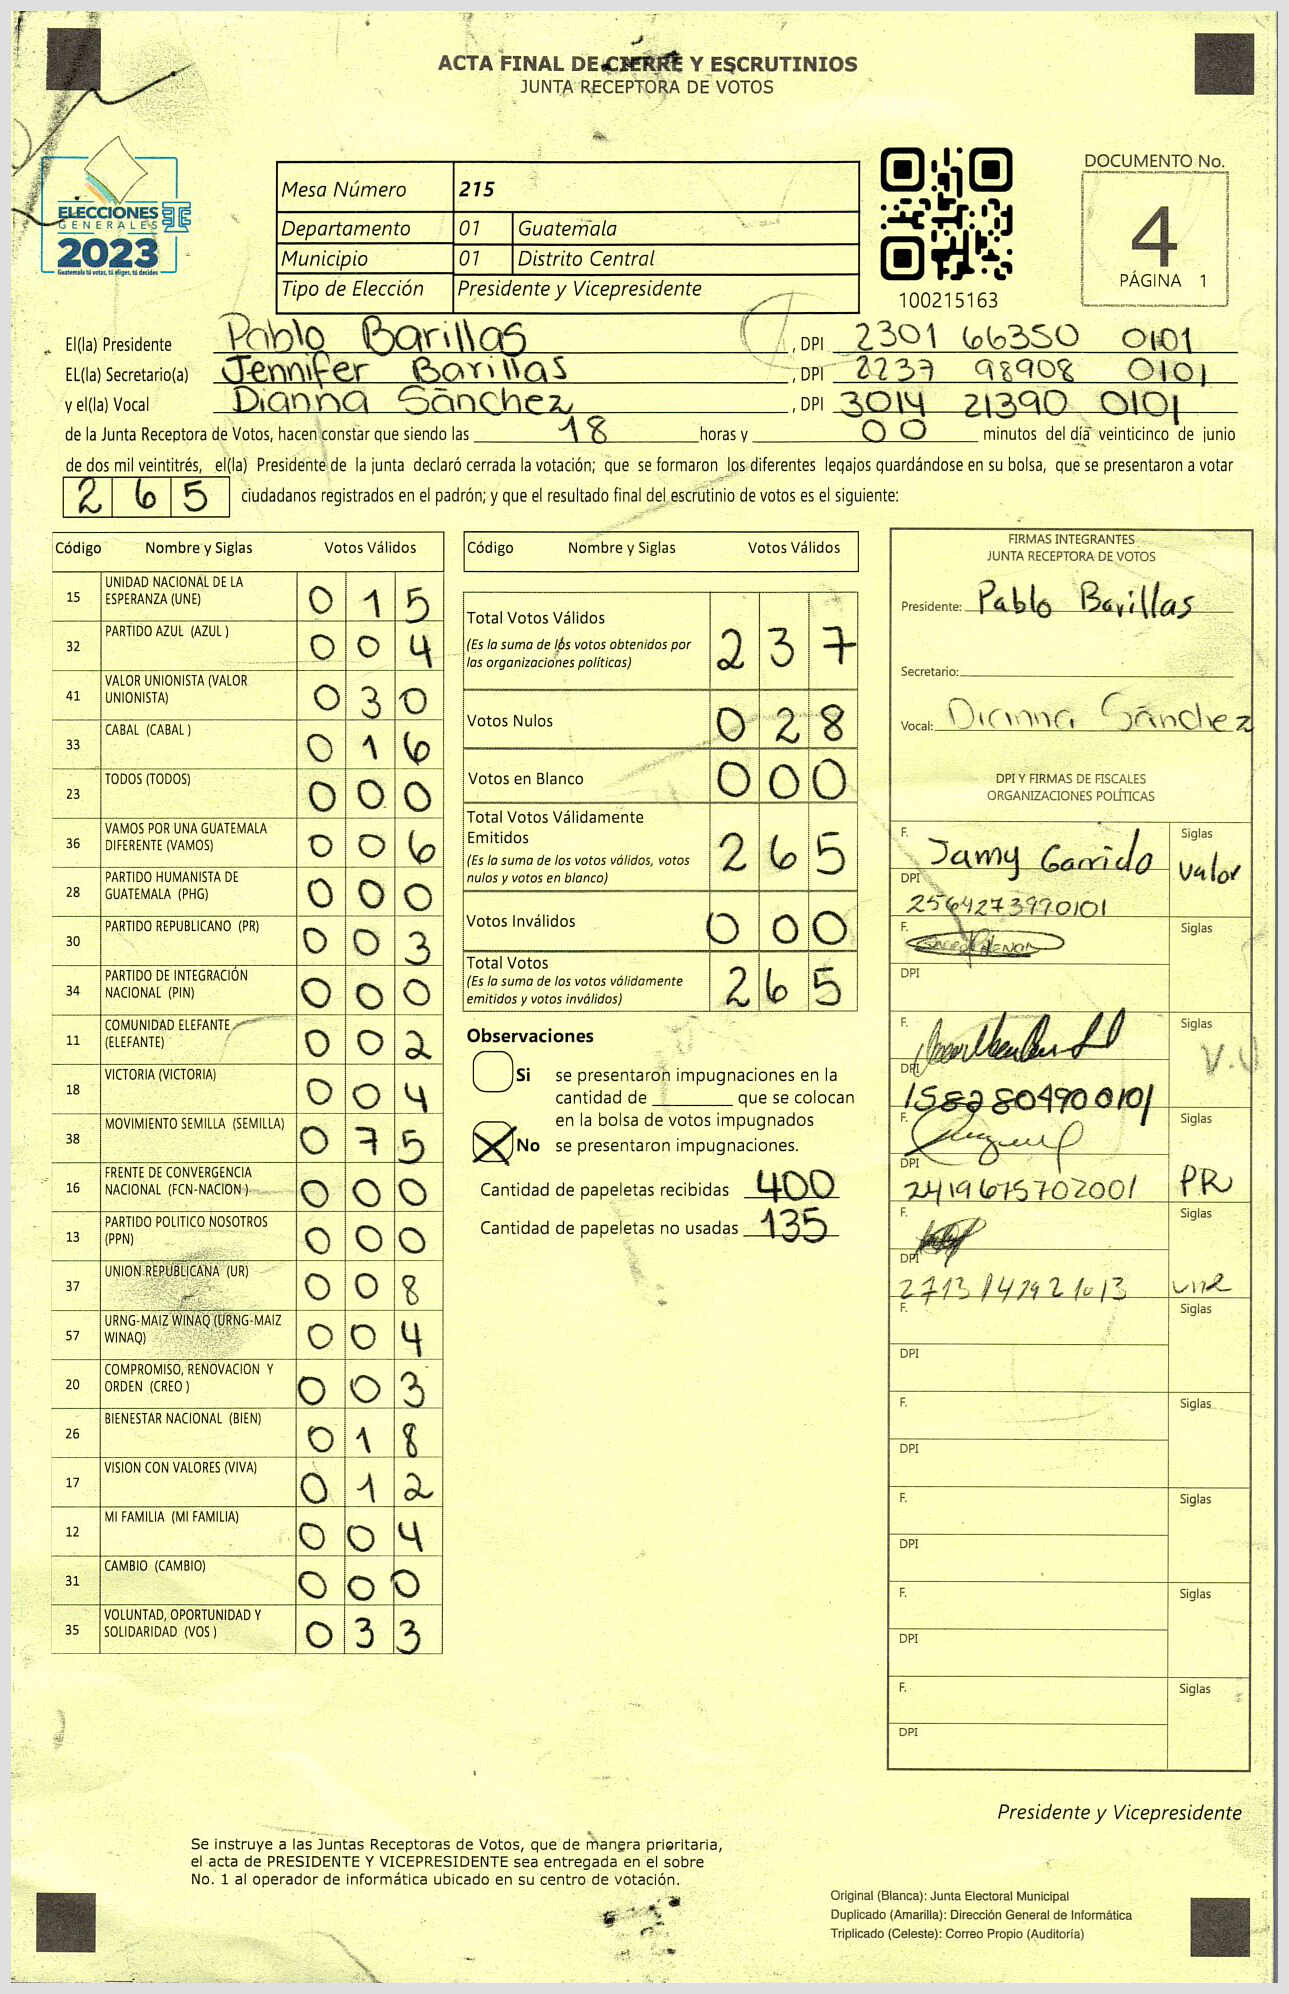 ACTA FINAL DE CIERRE Y ESCRUTINIOS
JUNTA RECEPTORA DE VOTOS
ELECCIONES
GENERALES
2023
Guatemala tú votas, tú eliges, tú decides
Mesa Número 215
Departamento 01 Guatemala
Municipio 01 Distrito Central
Tipo de Elección Presidente y Vicepresidente
100215163
DOCUMENTO No.
4
PÁGINA 1
El(la) Presidente Pablo Barillas , DPI 2301 66350 0101
EL(la) Secretario(a) Jennifer Barillas , DPI 2237 98908 0101
y el(la) Vocal Dianna Sánchez , DPI 3014 21390 0101
de la Junta Receptora de Votos, hacen constar que siendo las 18 horas y 00 minutos del día veinticinco de junio
de dos mil veintitrés, el(la) Presidente de la junta declaró cerrada la votación; que se formaron los diferentes legajos guardándose en su bolsa, que se presentaron a votar
265 ciudadanos registrados en el padrón; y que el resultado final del escrutinio de votos es el siguiente:
Código Nombre y Siglas Votos Válidos
15 UNIDAD NACIONAL DE LA ESPERANZA (UNE) 015
32 PARTIDO AZUL (AZUL ) 004
41 VALOR UNIONISTA (VALOR UNIONISTA) 030
33 CABAL (CABAL ) 016
23 TODOS (TODOS) 000
36 VAMOS POR UNA GUATEMALA DIFERENTE (VAMOS) 006
28 PARTIDO HUMANISTA DE GUATEMALA (PHG) 000
30 PARTIDO REPUBLICANO (PR) 003
34 PARTIDO DE INTEGRACIÓN NACIONAL (PIN) 000
11 COMUNIDAD ELEFANTE (ELEFANTE) 002
18 VICTORIA (VICTORIA) 004
38 MOVIMIENTO SEMILLA (SEMILLA) 075
16 FRENTE DE CONVERGENCIA NACIONAL (FCN-NACION ) 000
13 PARTIDO POLITICO NOSOTROS (PPN) 000
37 UNION REPUBLICANA (UR) 008
57 URNG-MAIZ WINAQ (URNG-MAIZ WINAQ) 004
20 COMPROMISO, RENOVACION Y ORDEN (CREO ) 003
26 BIENESTAR NACIONAL (BIEN) 018
17 VISION CON VALORES (VIVA) 012
12 MI FAMILIA (MI FAMILIA) 004
31 CAMBIO (CAMBIO) 000
35 VOLUNTAD, OPORTUNIDAD Y SOLIDARIDAD (VOS ) 033
Código Nombre y Siglas Votos Válidos
Total Votos Válidos 237
(Es la suma de los votos obtenidos por
las organizaciones políticas)
Votos Nulos 028
Votos en Blanco 000
Total Votos Válidamente
Emitidos 265
(Es la suma de los votos válidos, votos
nulos y votos en blanco)
Votos Inválidos 000
Total Votos 265
(Es la suma de los votos válidamente
emitidos y votos inválidos)
Observaciones
Si se presentaron impugnaciones en la
cantidad de ________ que se colocan
en la bolsa de votos impugnados
X No se presentaron impugnaciones.
Cantidad de papeletas recibidas 400
Cantidad de papeletas no usadas 135
FIRMAS INTEGRANTES
JUNTA RECEPTORA DE VOTOS
Presidente: Pablo Barillas
Secretario:
Vocal: Dianna Sánchez
DPI Y FIRMAS DE FISCALES
ORGANIZACIONES POLÍTICAS
F. Jamy Garrido Siglas Valor
DPI 2564273990101
F. Siglas
DPI
F. Siglas V.
DPI 1582804900101
F. Siglas PR
DPI 2419675702001
F. Siglas
DPI
F. Siglas
DPI
F. Siglas
DPI
F. Siglas
DPI
F. Siglas
DPI
F. Siglas
DPI
Presidente y Vicepresidente
Se instruye a las Juntas Receptoras de Votos, que de manera prioritaria,
el acta de PRESIDENTE Y VICEPRESIDENTE sea entregada en el sobre
No. 1 al operador de informática ubicado en su centro de votación.
Original (Blanca): Junta Electoral Municipal
Duplicado (Amarilla): Dirección General de Informática
Triplicado (Celeste): Correo Propio (Auditoría)